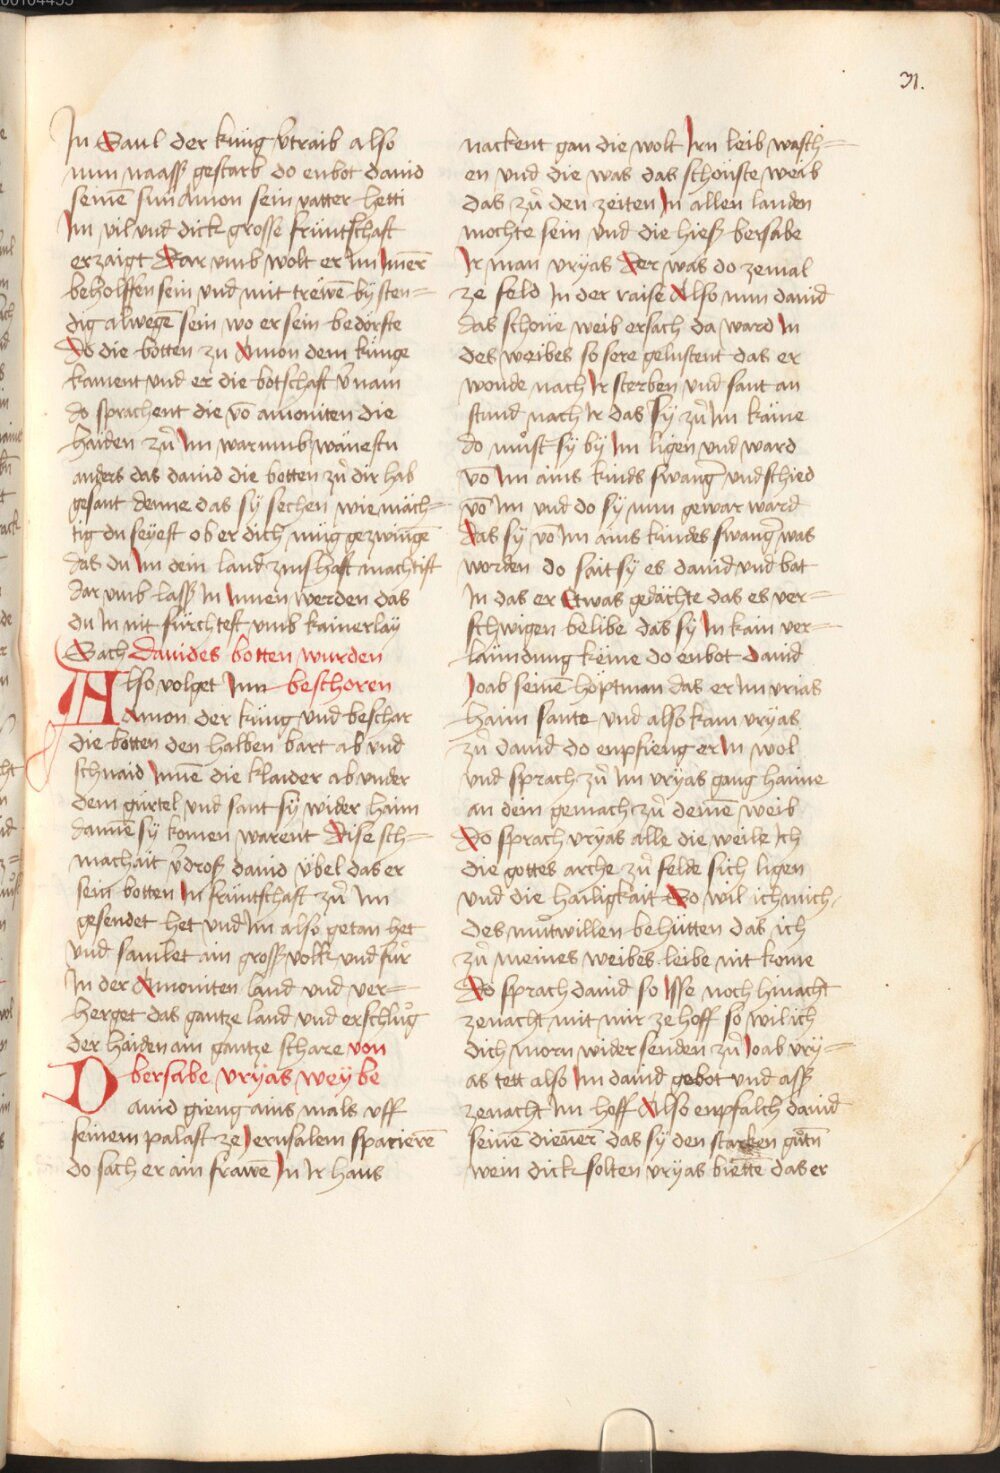 31.
In Saul der küng v̄traib also
nun naaß gestarb do enbot dauid
seinē sun Amon sein vatter hetti
Im vil vnd dick grosse früntschaft
erzaigt Dar vmb wolt er im Imer̄
beholffen sein vnd mit treẅē bÿsten=
dig alwegē sein wo er sein bedörfte
Do die botten zu Amon dem künge
kament vnd er die botschaft v̄nam
do sprachent die vō amoniten die
haiden zů Im war vmb wänestu
anders das dauid die botten zů dir hab
gesant denne das sÿ sechen wie mäch=
tig du seÿest ob er dich müg gezwingē
das du Im dein land zinshaft machtist
dar vmb lasß In Innen werden das
du In nit fürchtest vmb kainerlaÿ
Sach Dauides botten wurden
Also volget Im beschoren
Amon der küng vnd beschar
die botten den halben bart ab vnd
schnaid Innē die klaider ab vnder
dem gürtel vnd sant sÿ wider haim
dannē sÿ komen warent Dise sch=
machait v̄droß dauid übel das er
sein botten In früntschaft zů Im
gesendet het vnd Im also getan het
vnd samlet ain groß volk vnd fůr
In der Amoniten land vnd ver=
herget das gantze land vnd erschlůg
der haiden ain gantze schare von
bersabe vrÿas weÿbe
Dauid gieng ains mals vff
seinem palast ze Jerusalem spacierē
do sach er ain frawē In Ir haus
nackent gan die wolt Irn leib wasch=
en vnd die was das schönste weib
das zů den zeiten In allen landen
mochte sein vnd die hieß bersabe
Ir man vrÿas Der was do zemal
ze feld In der raise Also nun dauid
das schöne weib ersach da ward In
des weibes so sere gelustent das er
wonde nach Ir sterben vnd sant an
stund nach Ir das sÿ zů Im käme
do můst sÿ bÿ Im ligen vnd ward
vō Im ains kinds swang̃ vnd schied
vō Im vnd do sÿ nun gewar ward
Das sÿ vō Im ains kindes swang̃ was
worden do sait sÿ es dauid vnd bat
In das er Etwas gedächte das es ver=
schwigen belibe das sÿ In kain ver=
läundung keme do enbot dauid
Joab seinē höptman das er im vrias
haim sante vnd also kam vrÿas
zů dauid do enpfieng er In wol
vnd sprach zů im vrÿas gang haime
an dein gemach zů deinē weib
Do sprach vrÿas alle die weile Ich
die gottes arche zů felde sich ligen
vnd die hailigkait So wil ich mich
des můtwillen behütten das ich
zů meines weibes leibe nit kome
Do sprach dauid so Isse noch hinacht
zenacht mit mir ze hoff so wil ich
dich morn wider senden zů Joab vrÿ=
as tett also Im dauid gebot vnd asß
zenacht Im hoff Also enpfalch dauid
seinē dienēr das sÿ den starken gůtn̄
wein dick solten vrÿas biette das er